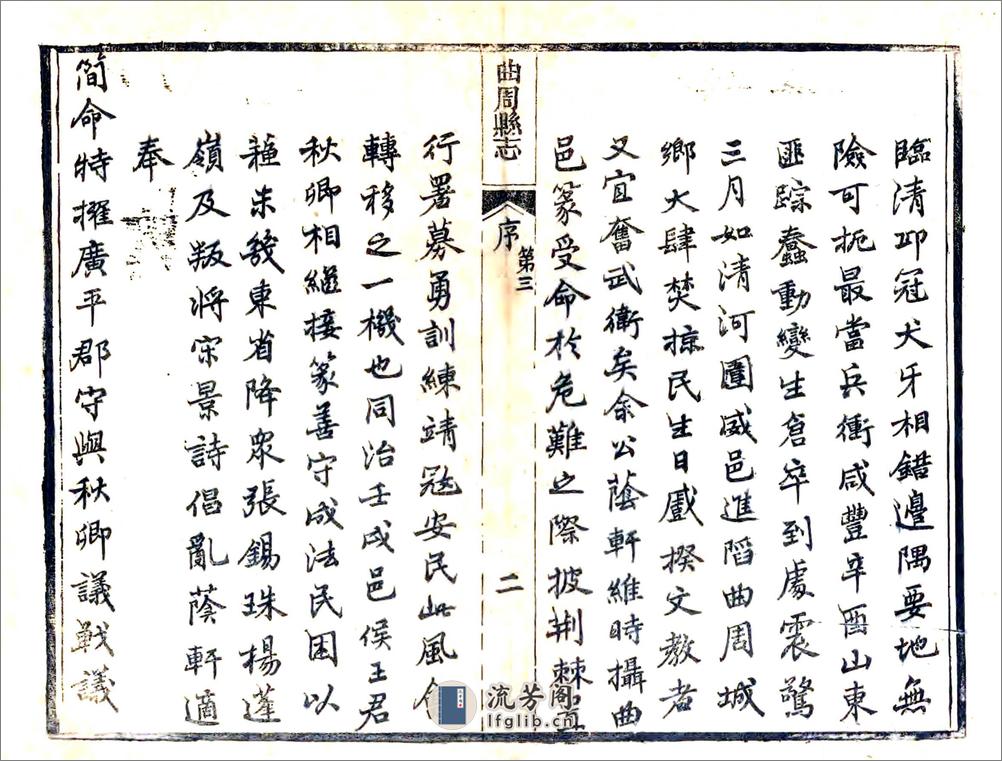 臨清邱冠犬牙相錯邊隅要地無
險可扼最當兵衝咸豐辛酉山東
匪踪蠢動變生倉卒到處震驚
三月如清河圍威邑進陷曲周城
鄉大肆焚掠民生日蹙揆文教者
又宜奮武衛矣余公蔭軒維時攝曲
邑篆受命於危難之際披荆棘
曲周縣志
序
第三
二
行署募勇訓練靖冦安民此風會
轉移之一機也同治壬戌邑侯王君
秋卿相繼接篆善守成法民困以
蘓未幾東省降眾張錫珠楊蓬
嶺及叛將宋景詩倡亂蔭軒適
奉
簡命特擢廣平郡守與秋卿議戰議
流芳阁
lfglib.cn